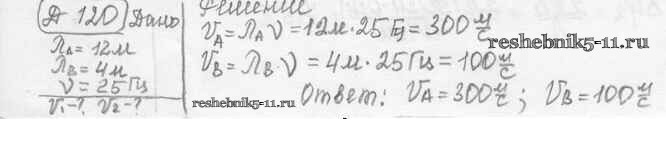 Д 120 Дано
λA = 12м
λB = 4м
ν = 25Гц
V1-? V2-?
Решение
VA = λA ν = 12м · 25Гц = 300 м/с
VB = λB · ν = 4м · 25Гц = 100 м/с
Ответ: VA = 300 м/с ; VB = 100 м/с
reshebnik5-11.ru
reshebnik5-11.ru